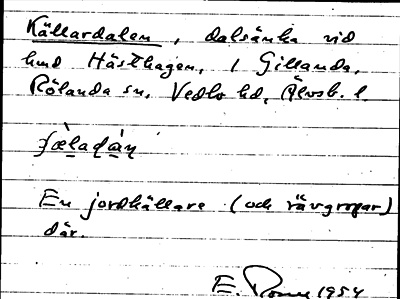 Källardalen, dalsänka vid
hmd Hästhagen, 1 Gillanda,
Rölanda sn, Vedbo hd, Älvsb. l.
En jordkällare (och rävgropar)
där.
E. 1954